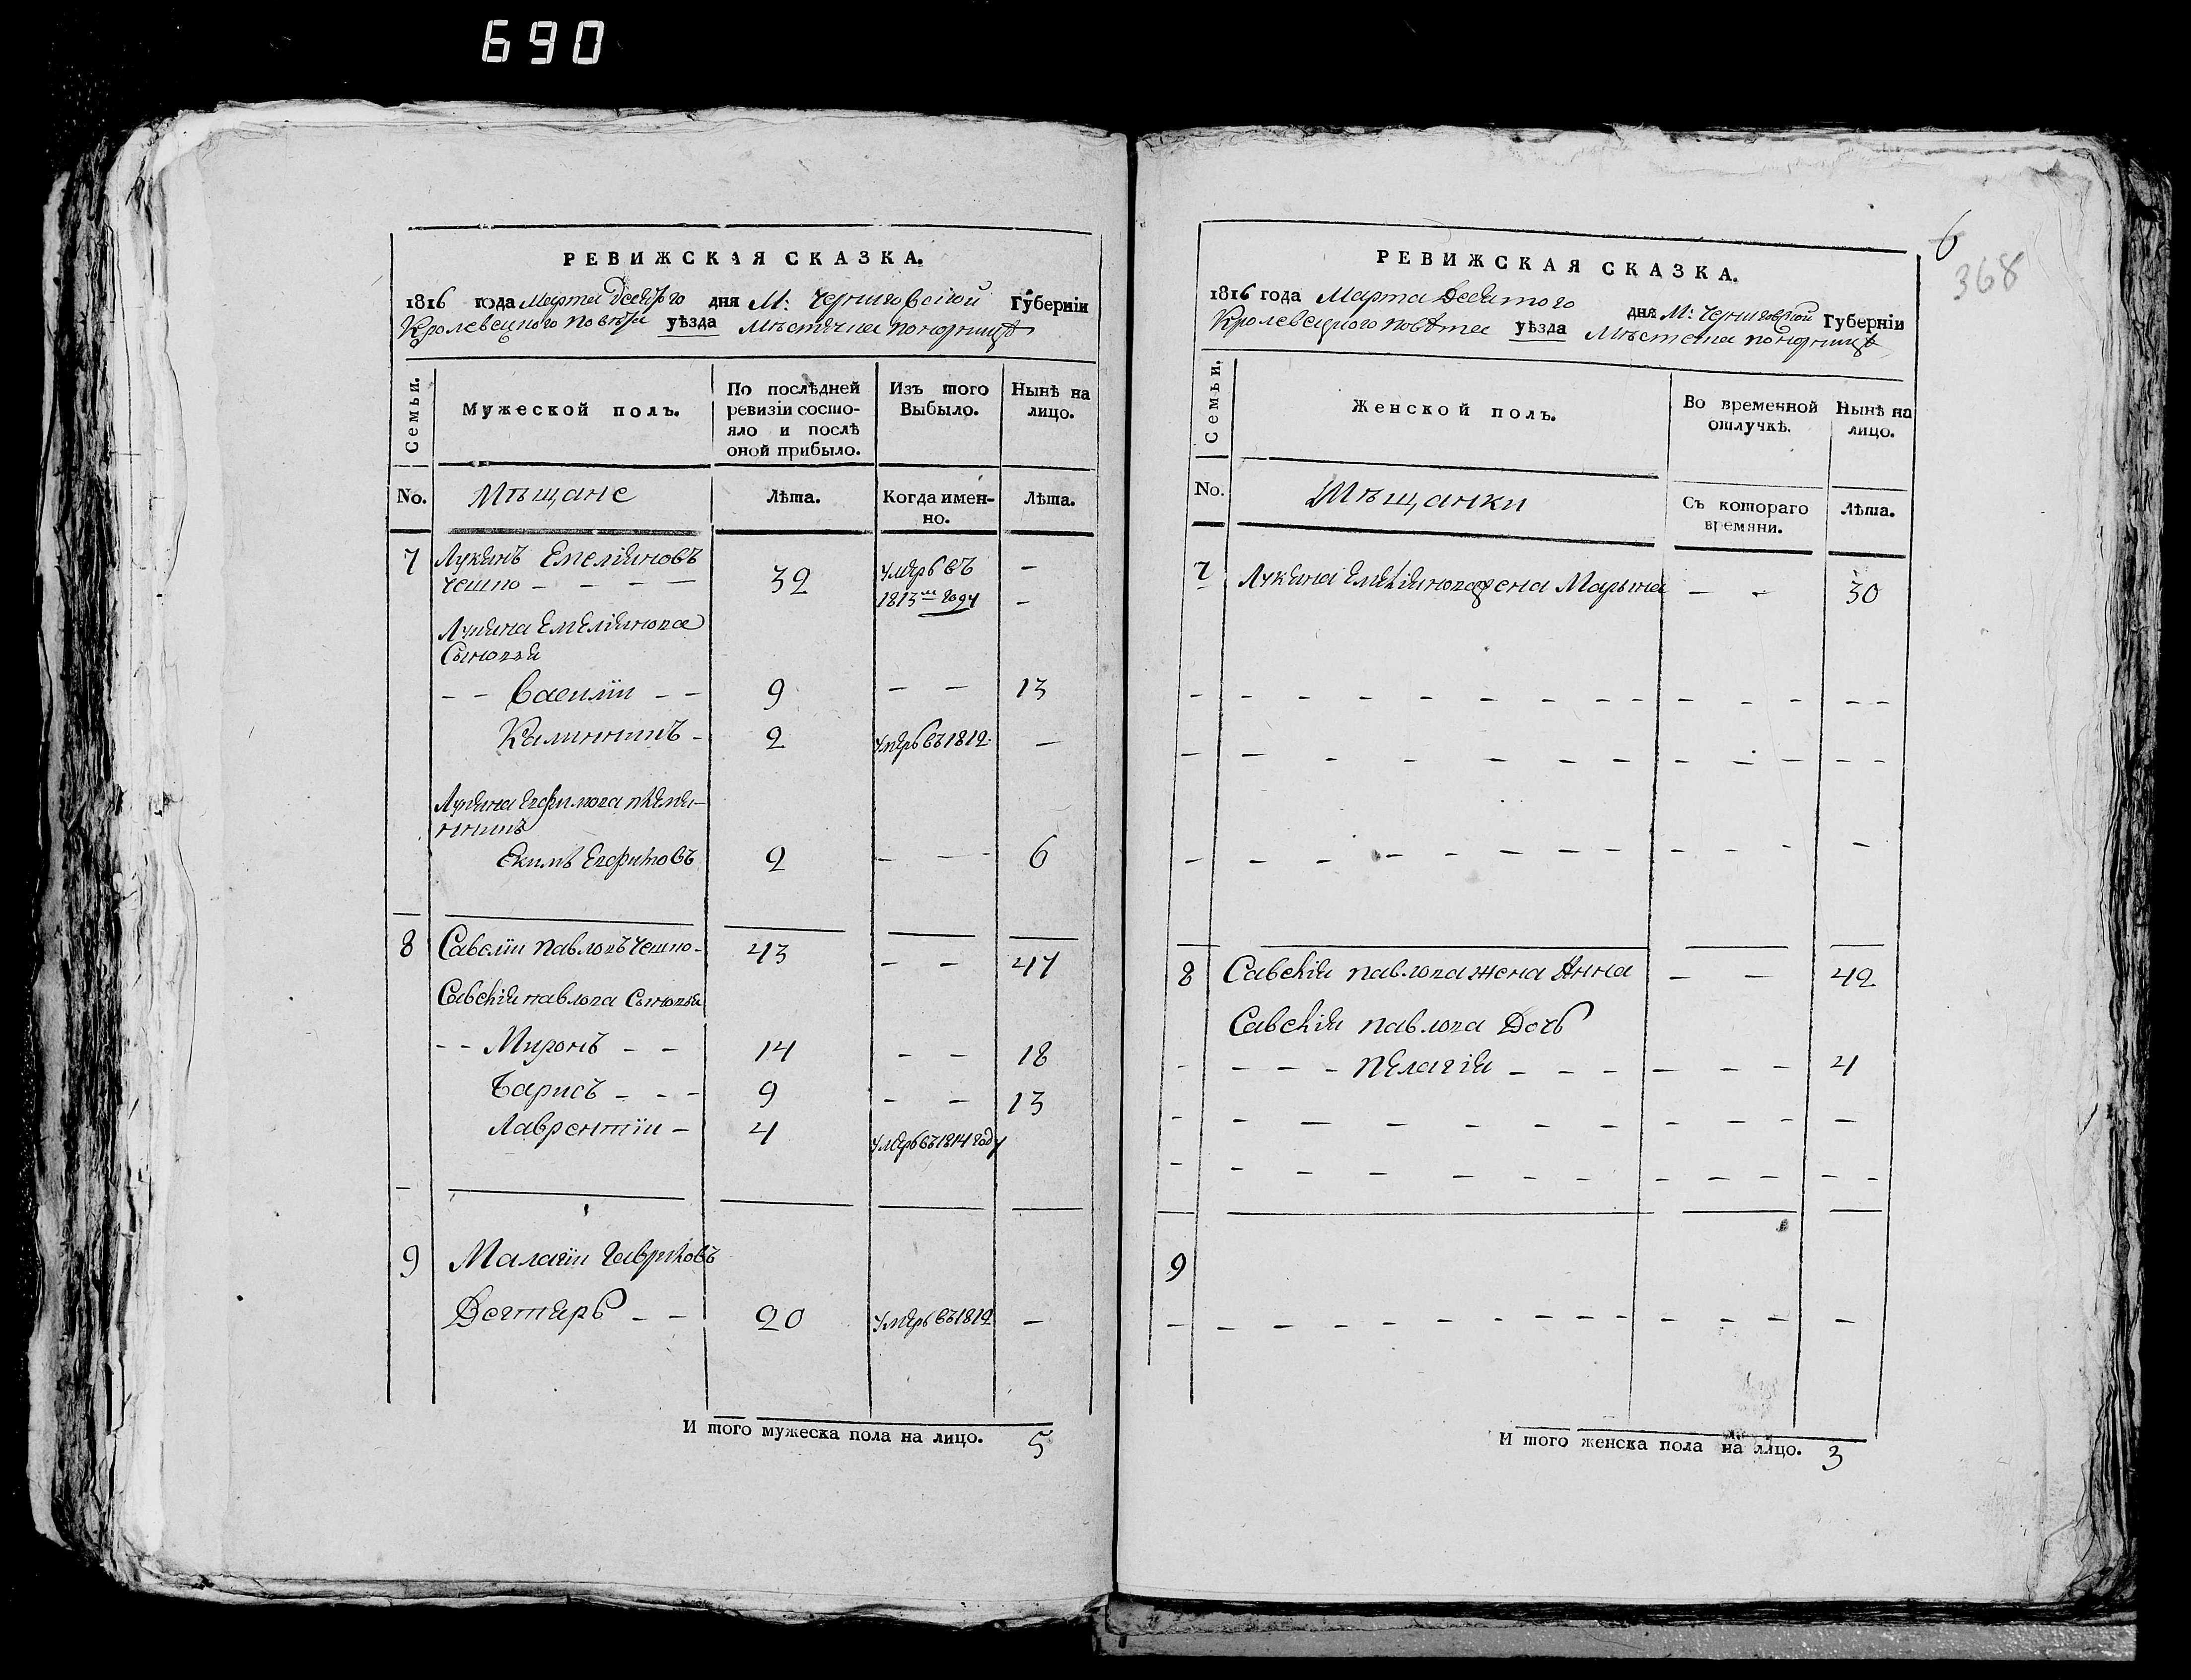 690
РЕВИЖСКАЯ СКАЗКА.
1816 года Марта десятого дня М: Черниговской Губерніи
Кролевецкого повѣта уѣзда Мѣстечка Понорницѣ
Семьи.
Мужеской полъ.
По послѣдней ревизіи состо-
яло и послѣ оной прибыло.
Изъ того Выбыло.
Нынѣ на лицо.
No. Мѣщане Лѣта. Когда имен-
но. Лѣта.
7 Лукянъ Емеліяновъ
39 умеръ въ —
1813м году —
Лукяна Емеліянова
Сыновья
— — Василій — — 9 — — 13
Калинникъ — 2 умеръ въ 1812. —
племя-
нникъ
Екимъ 2 — — — 6
8 Савелій Павловъ 43 — — 47
Савелія Павлова Сыновья
— — Миронъ — — 14 — — 18
Барисъ — — — 9 — — 13
Лаврентій — 4 умеръ въ 1814 году
9 Малахій Гавриловъ
Дегтяръ — — 20 умеръ въ 1812 —
И того мужеска пола на лицо. 5
6
368
РЕВИЖСКАЯ СКАЗКА.
1816 года Марта Десятого дня М: Черниговской Губерніи
Кролевецкого повѣта уѣзда Мѣстечка Понорницѣ
Семьи.
Женской полъ.
Во временной отлучкѣ.
Нынѣ на лицо.
No. Мѣщанки Съ котораго времяни. Лѣта.
7 Лукяна Емеліянова жена Марьяна — — 30
8 Савелія Павлова жена Анна — — 42
Савелія Павлова Дочь
— — — — Пелагія — — — — — — 4
9
И того женска пола на лицо. 3